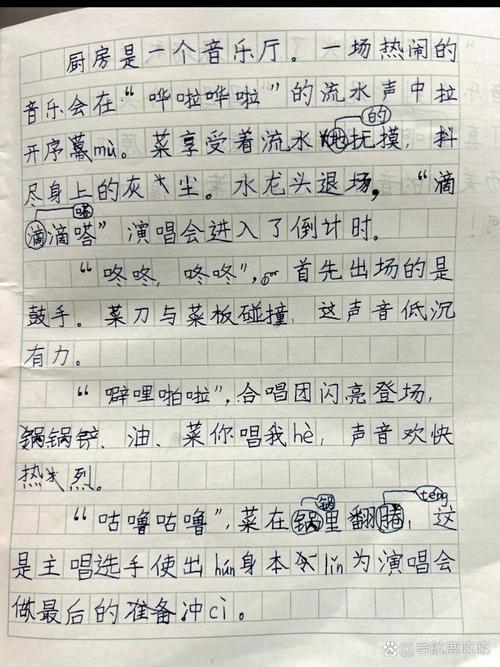 厨房是一个音乐厅。一场热闹的
音乐会在“哗啦哗啦”的流水声中拉
开序幕mù。菜享受着流水的抚摸，抖
尽身上的灰尘。水龙头退场，“滴
嗒滴嗒”演唱会进入了倒计时。
“咚咚，咚咚”，首先出场的是
鼓手。菜刀与菜板碰撞，这声音低沉
有力。
“噼哩啪啦”，合唱团闪亮登场，
锅锅铲、油、菜你唱我hè，声音欢快
热烈。
“咕噜咕噜”，菜在锅里翻腾téng，这
是主唱选手使出hún身本lǐn为演唱会
做最后的准备冲cì。
@导航鹿吃吃